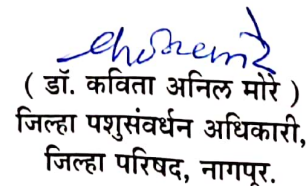 ( डॉ. कविता अनिल मोरे )
जिल्हा पशुसंवर्धन अधिकारी,
जिल्हा परिषद, नागपुर.